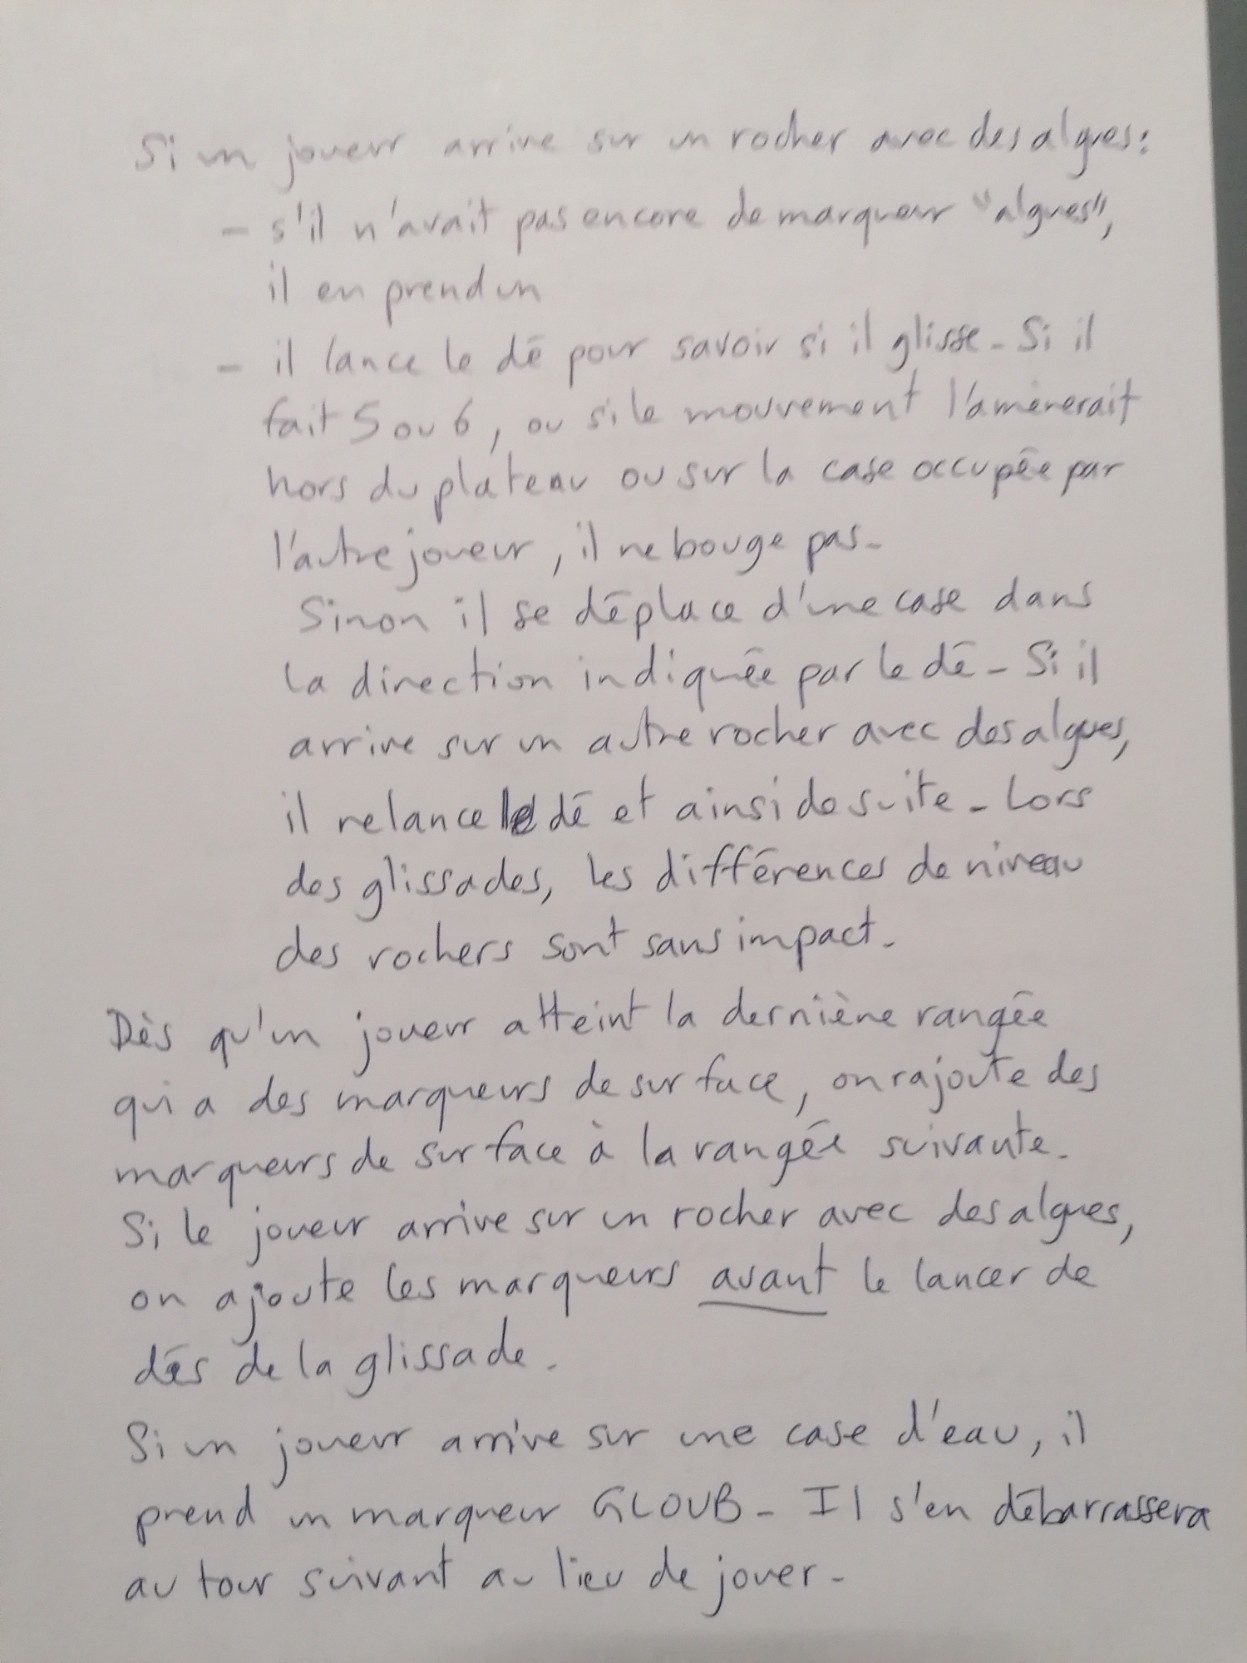 Si un joueur arrive sur un rocher avec des algues :
- s'il n'avait pas encore de marqueur "algues",
il en prend un
- il lance le dé pour savoir si il glisse. Si il
fait 5 ou 6, ou si le mouvement l'amènerait
hors du plateau ou sur la case occupée par
l'autre joueur, il ne bouge pas.
Sinon il se déplace d'une case dans
la direction indiquée par le dé. Si il
arrive sur un autre rocher avec des algues,
il relance le dé et ainsi de suite. Lors
des glissades, les différences de niveau
des rochers sont sans impact.
Dès qu'un joueur atteint la dernière rangée
qui a des marqueurs de surface, on rajoute des
marqueurs de surface à la rangée suivante.
Si le joueur arrive sur un rocher avec des algues,
on ajoute les marqueurs avant le lancer de
dés de la glissade.
Si un joueur arrive sur une case d'eau, il
prend un marqueur GLOUB. Il s'en débarrassera
au tour suivant au lieu de jouer.